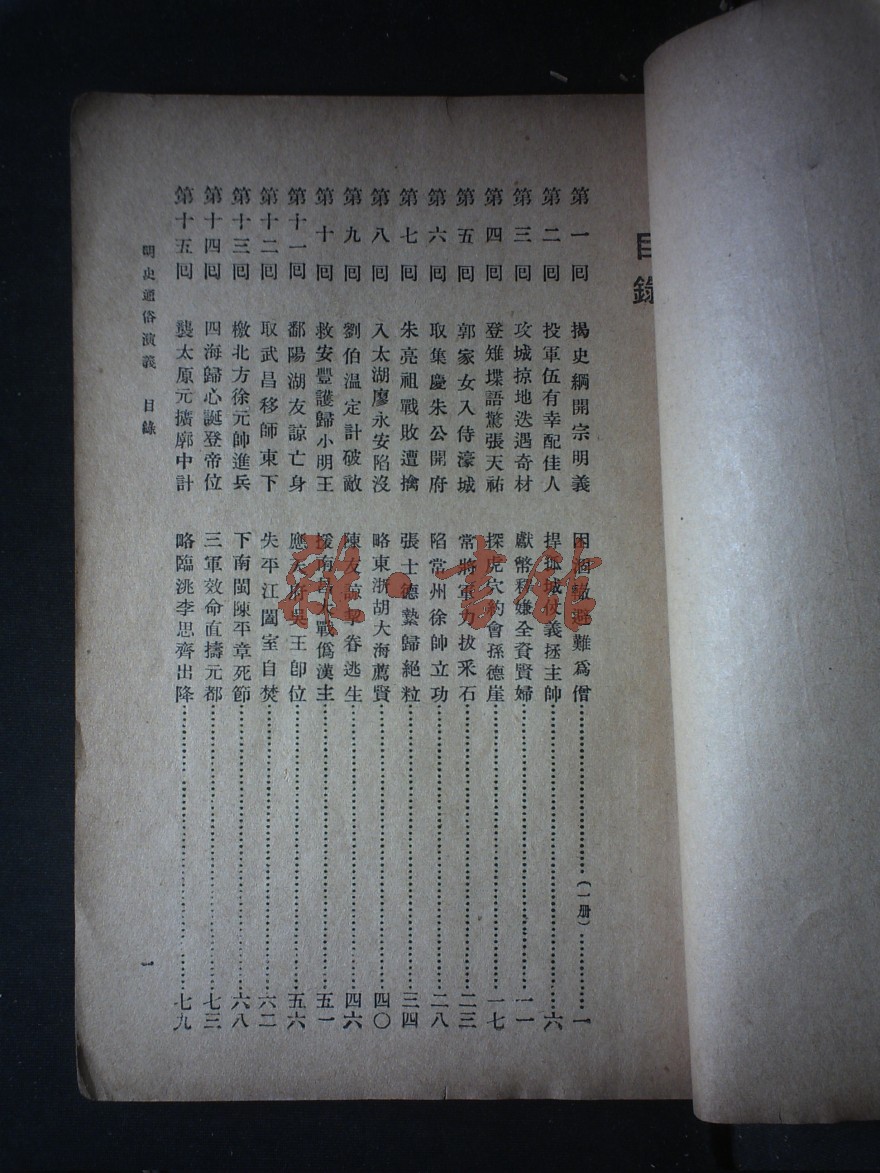 目錄
第一回 揭史綱開宗明義 困涸轍避難爲僧……(一册)……一
第二回 投軍伍有幸配佳人 捍孤城仗義拯主帥……六
第三回 攻城掠地迭遇奇材 獻幣釋嫌全資賢婦……一一
第四回 登雉堞語驚張天祐 探虎穴約會孫德崖……一七
第五回 郭家女入侍濠城 常將軍力拔采石……二三
第六回 取集慶朱公開府 陷常州徐帥立功……二八
第七回 朱亮祖戰敗遭擒 張士德縶歸絕粒……三四
第八回 入太湖廖永安陷沒 略東浙胡大海薦賢……四〇
第九回 劉伯温定計破敵 陳友諒挈眷逃生……四六
第十回 救安豐護歸小明王 援南昌大戰僞漢主……五一
第十一回 鄱陽湖友諒亡身 應天府吳王卽位……五六
第十二回 取武昌移師東下 失平江闔室自焚……六二
第十三回 檄北方徐元帥進兵 下南閩陳平章死節……六八
第十四回 四海歸心誕登帝位 三軍效命直擣元都……七三
第十五回 襲太原元擴廓中計 略臨洮李思齊出降……七九
明史通俗演義 目錄
一
雜·書館